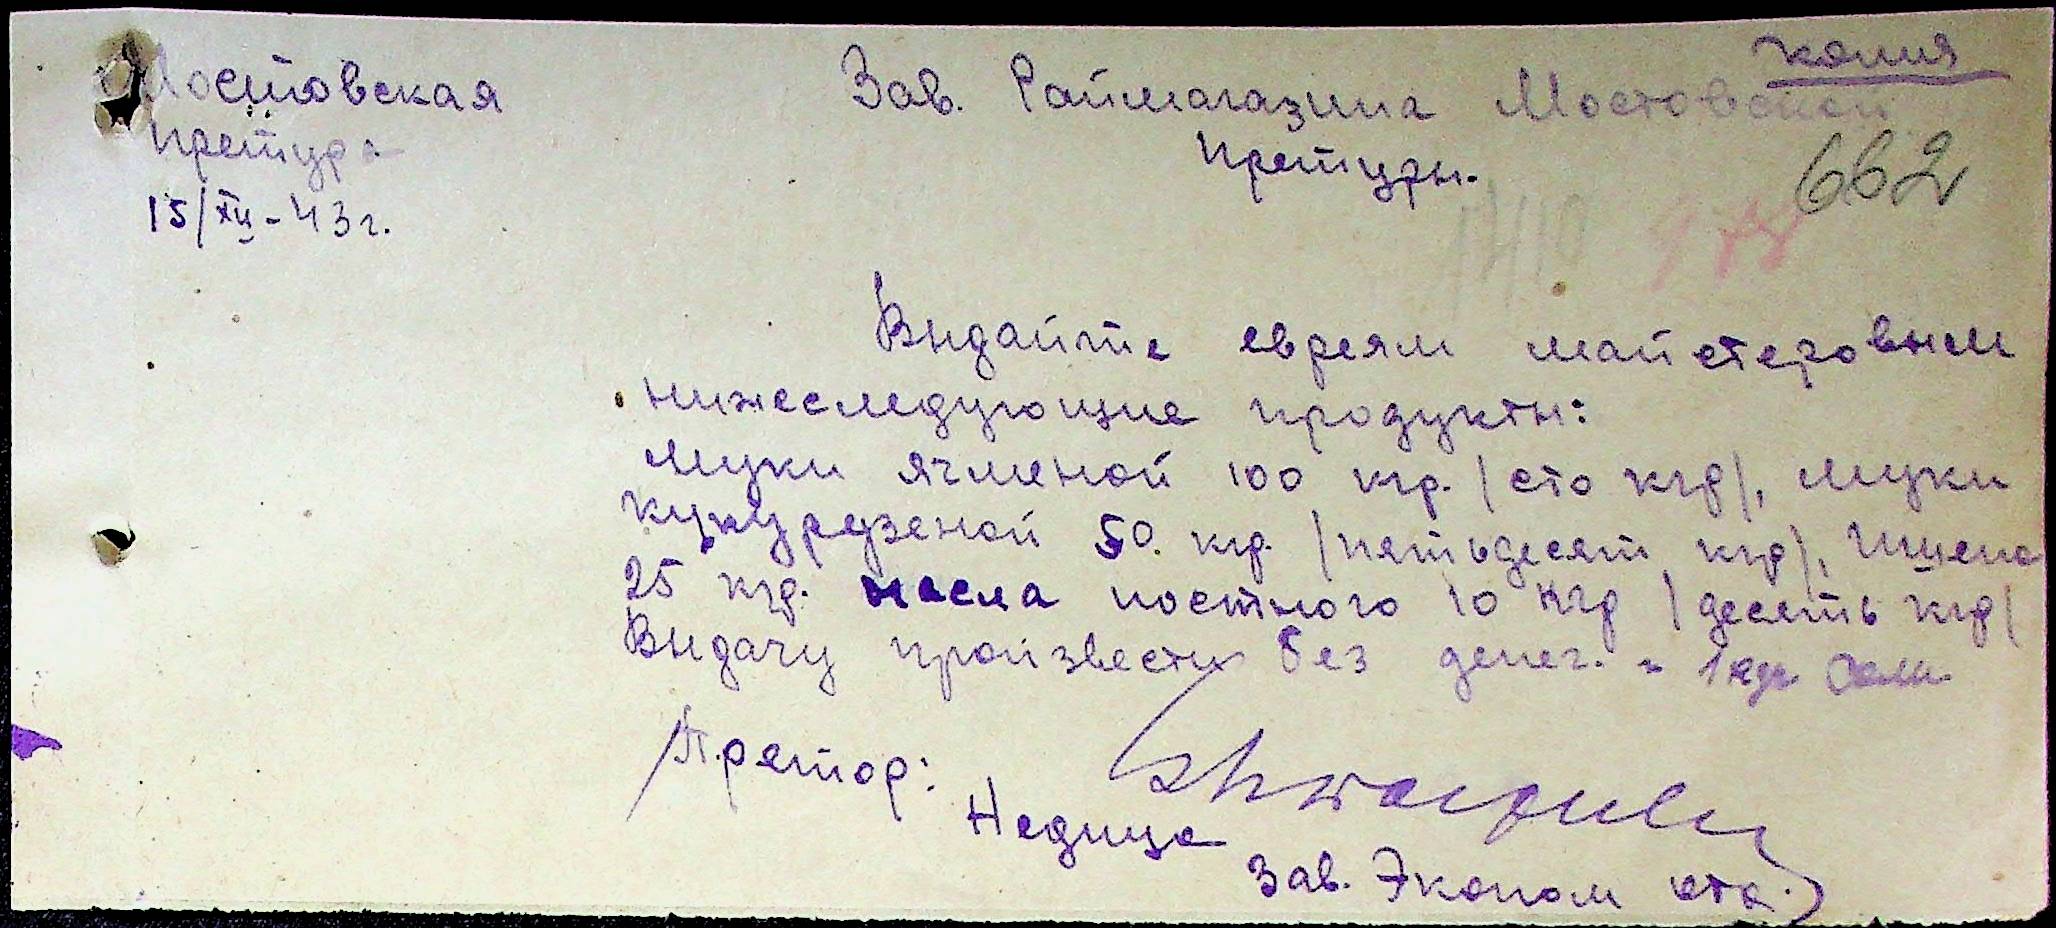 копия
Мостовская
претура
15/XII - 43 г.
Зав. Раймагазина Мостовской
претуры.
662
Выдайте евреям майстеровым
нижеследующие продукты:
Муки ячменой 100 кгр. /сто кгр/, муки
кукурузеной 50. кгр. /пятьдесят кгр/, пшена
25 кгр. масла постного 10 кгр /десять кгр/
Выдачу произвести без денег. 1 кгр соли
Претор:
Недица
Зав. Эконом отд.